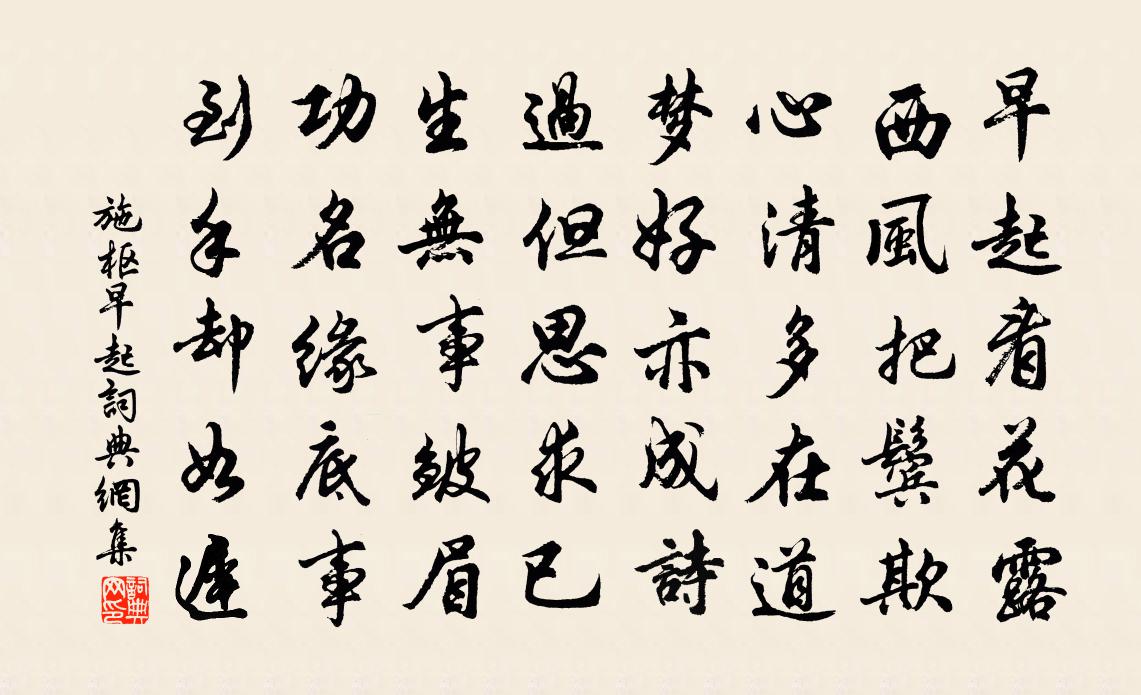 早起看花露
西風把鬢欺
心清多在道
梦好亦成詩
過但思求已
生無事皴眉
功名緣底事
到手却如遲
施枢早起詞典網集
詞典網印